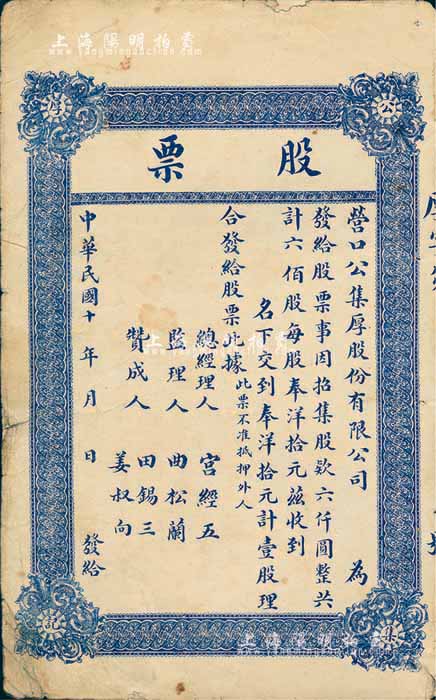 上海陽明拍賣
www.yangmingauction.com
公
厚
股票
營口公集厚股份有限公司 為
發給股票事因招集股欵六仟圓整共
計六佰股每股奉洋拾元茲收到
名下交到奉洋拾元計壹股理
合發給股票此據此票不准抵押外人
總經理人 宮經五
監理人 曲松蘭
贊成人 田錫三
姜叔向
中華民國十 年 月 日 發給
集
記